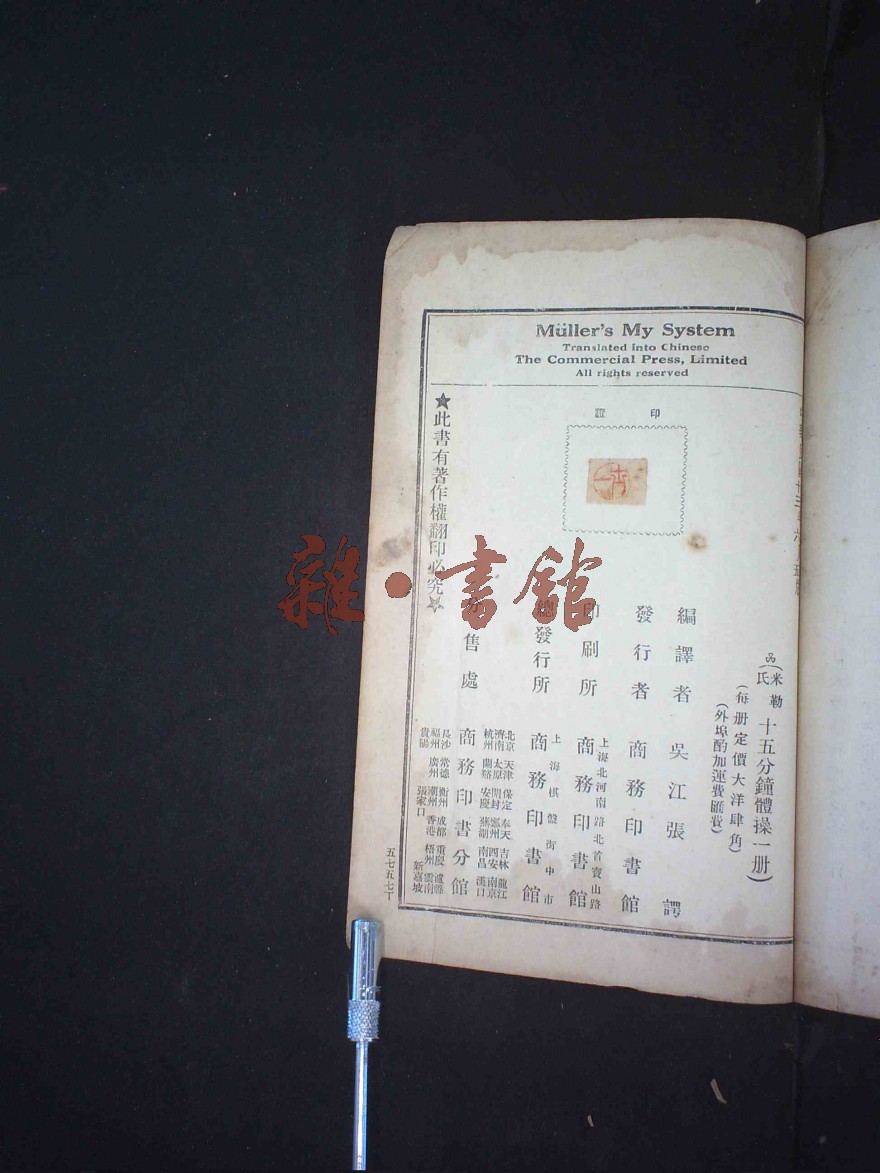 Müller's My System
Translated into Chinese
The Commercial Press, Limited
All rights reserved
印證
(米勒氏十五分鐘體操一册)
(每册定價大洋肆角)
(外埠酌加運費匯費)
編譯者 吳江張諤
發行者 商務印書館
印刷所 上海北河南路北首寶山路 商務印書館
總發行所 上海棋盤街中市 商務印書館
分售處 商務印書分館
北京 天津 保定 奉天 吉林 龍江
濟南 太原 開封 鄭州 西安 南京
杭州 蘭谿 安慶 蕪湖 南昌 漢口
長沙 常德 衡州 成都 重慶 瀘縣
福州 廣州 潮州 香港 梧州 雲南
貴陽 張家口 新嘉坡
★此書有著作權翻印必究★
五七五七丁
雜·書館